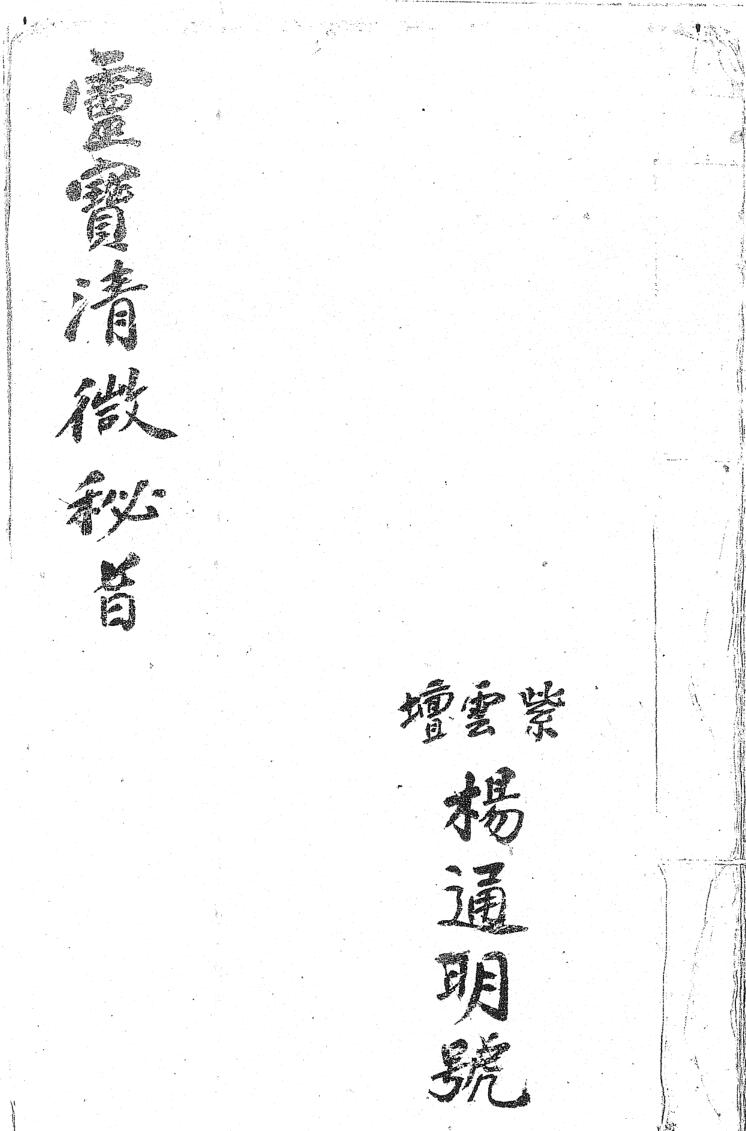 紫雲壇
楊通明號
靈寶清微秘旨